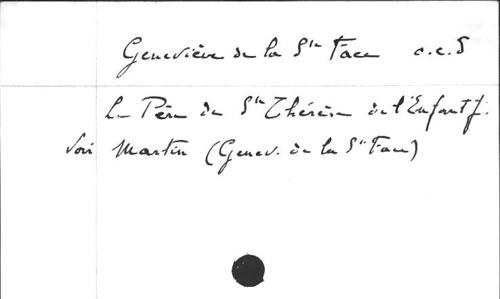 Geneviève de la Ste Face o.c.d
Le Père de Ste Thérèse de l'Enfant J.
Voir Martin (Genev. de la Ste Face)